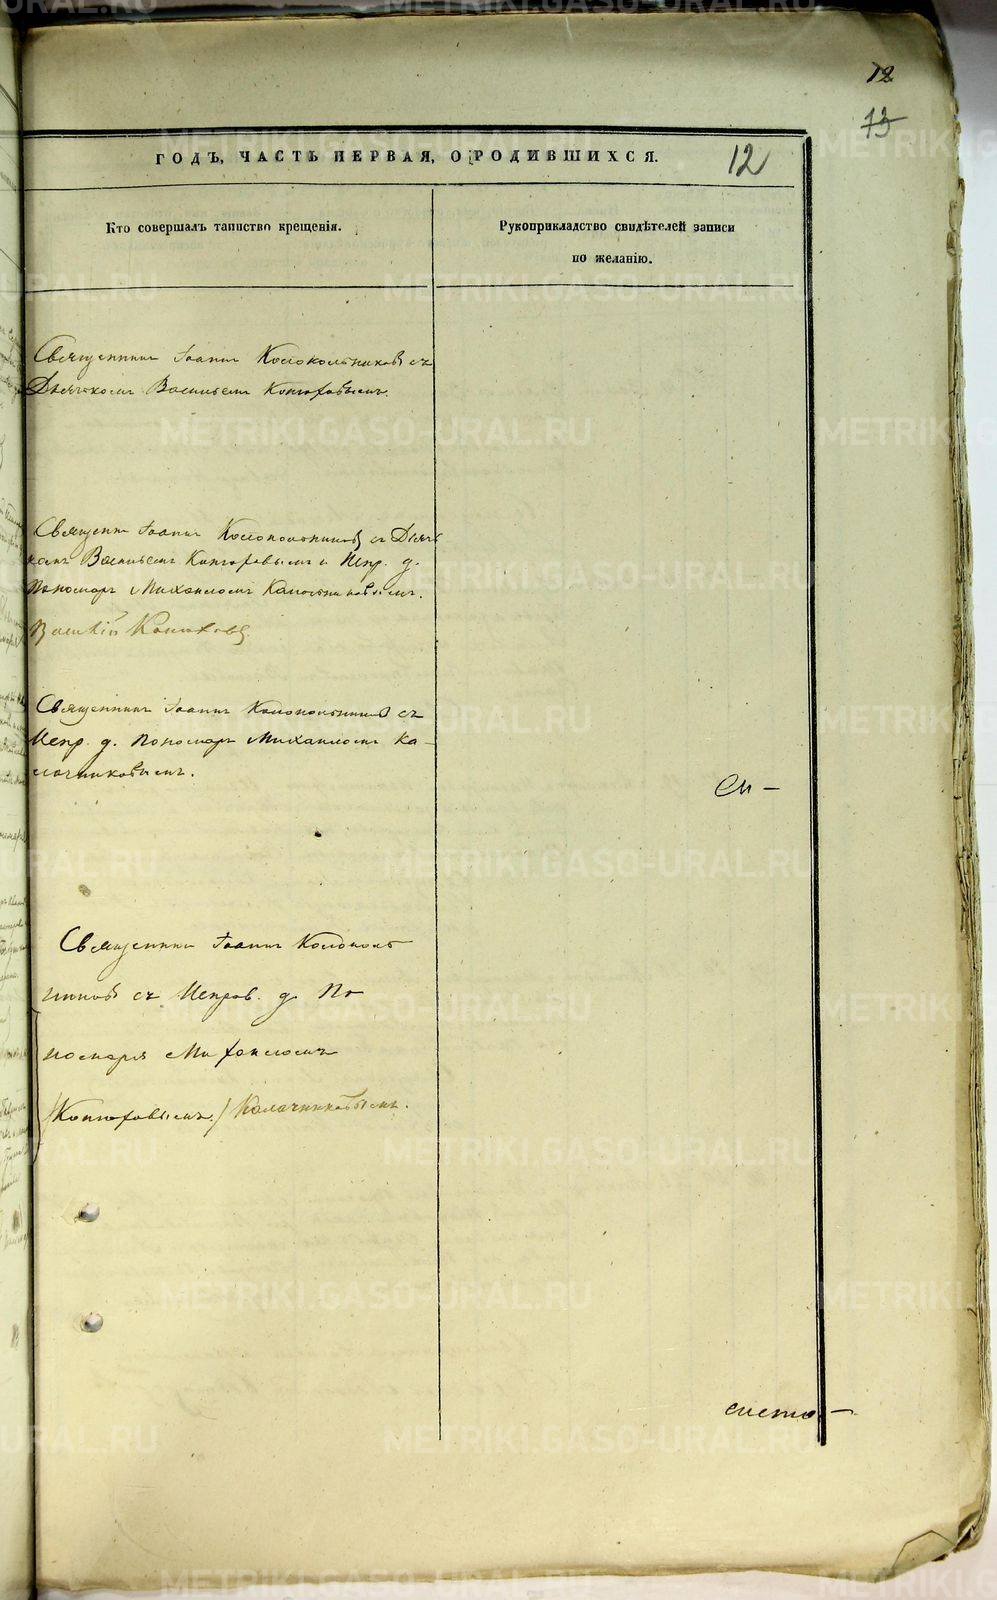 12
13
ГОДЪ, ЧАСТЬ ПЕРВАЯ, О РОДИВШИХСЯ.
12
Кто совершалъ таинство крещенія.
Рукоприкладство свидѣтелей записи
по желанію.
Священникъ Іоаннъ Колокольниковъ съ
Дьячкомъ Васильемъ
Священникъ Іоаннъ Колокольниковъ съ Дьяч
комъ Васильемъ и Испр. д.
Пономаря Михаиломъ Калачниковымъ.
Священникъ Іоаннъ Колокольниковъ съ
Испр. д. Пономаря Михаиломъ Ка-
лачниковымъ.
Священникъ Іоаннъ Колоколь
никовъ съ Исправ. д. По
номаря Михаиломъ
Калачниковымъ.
METRIKI.GASO-URAL.RU